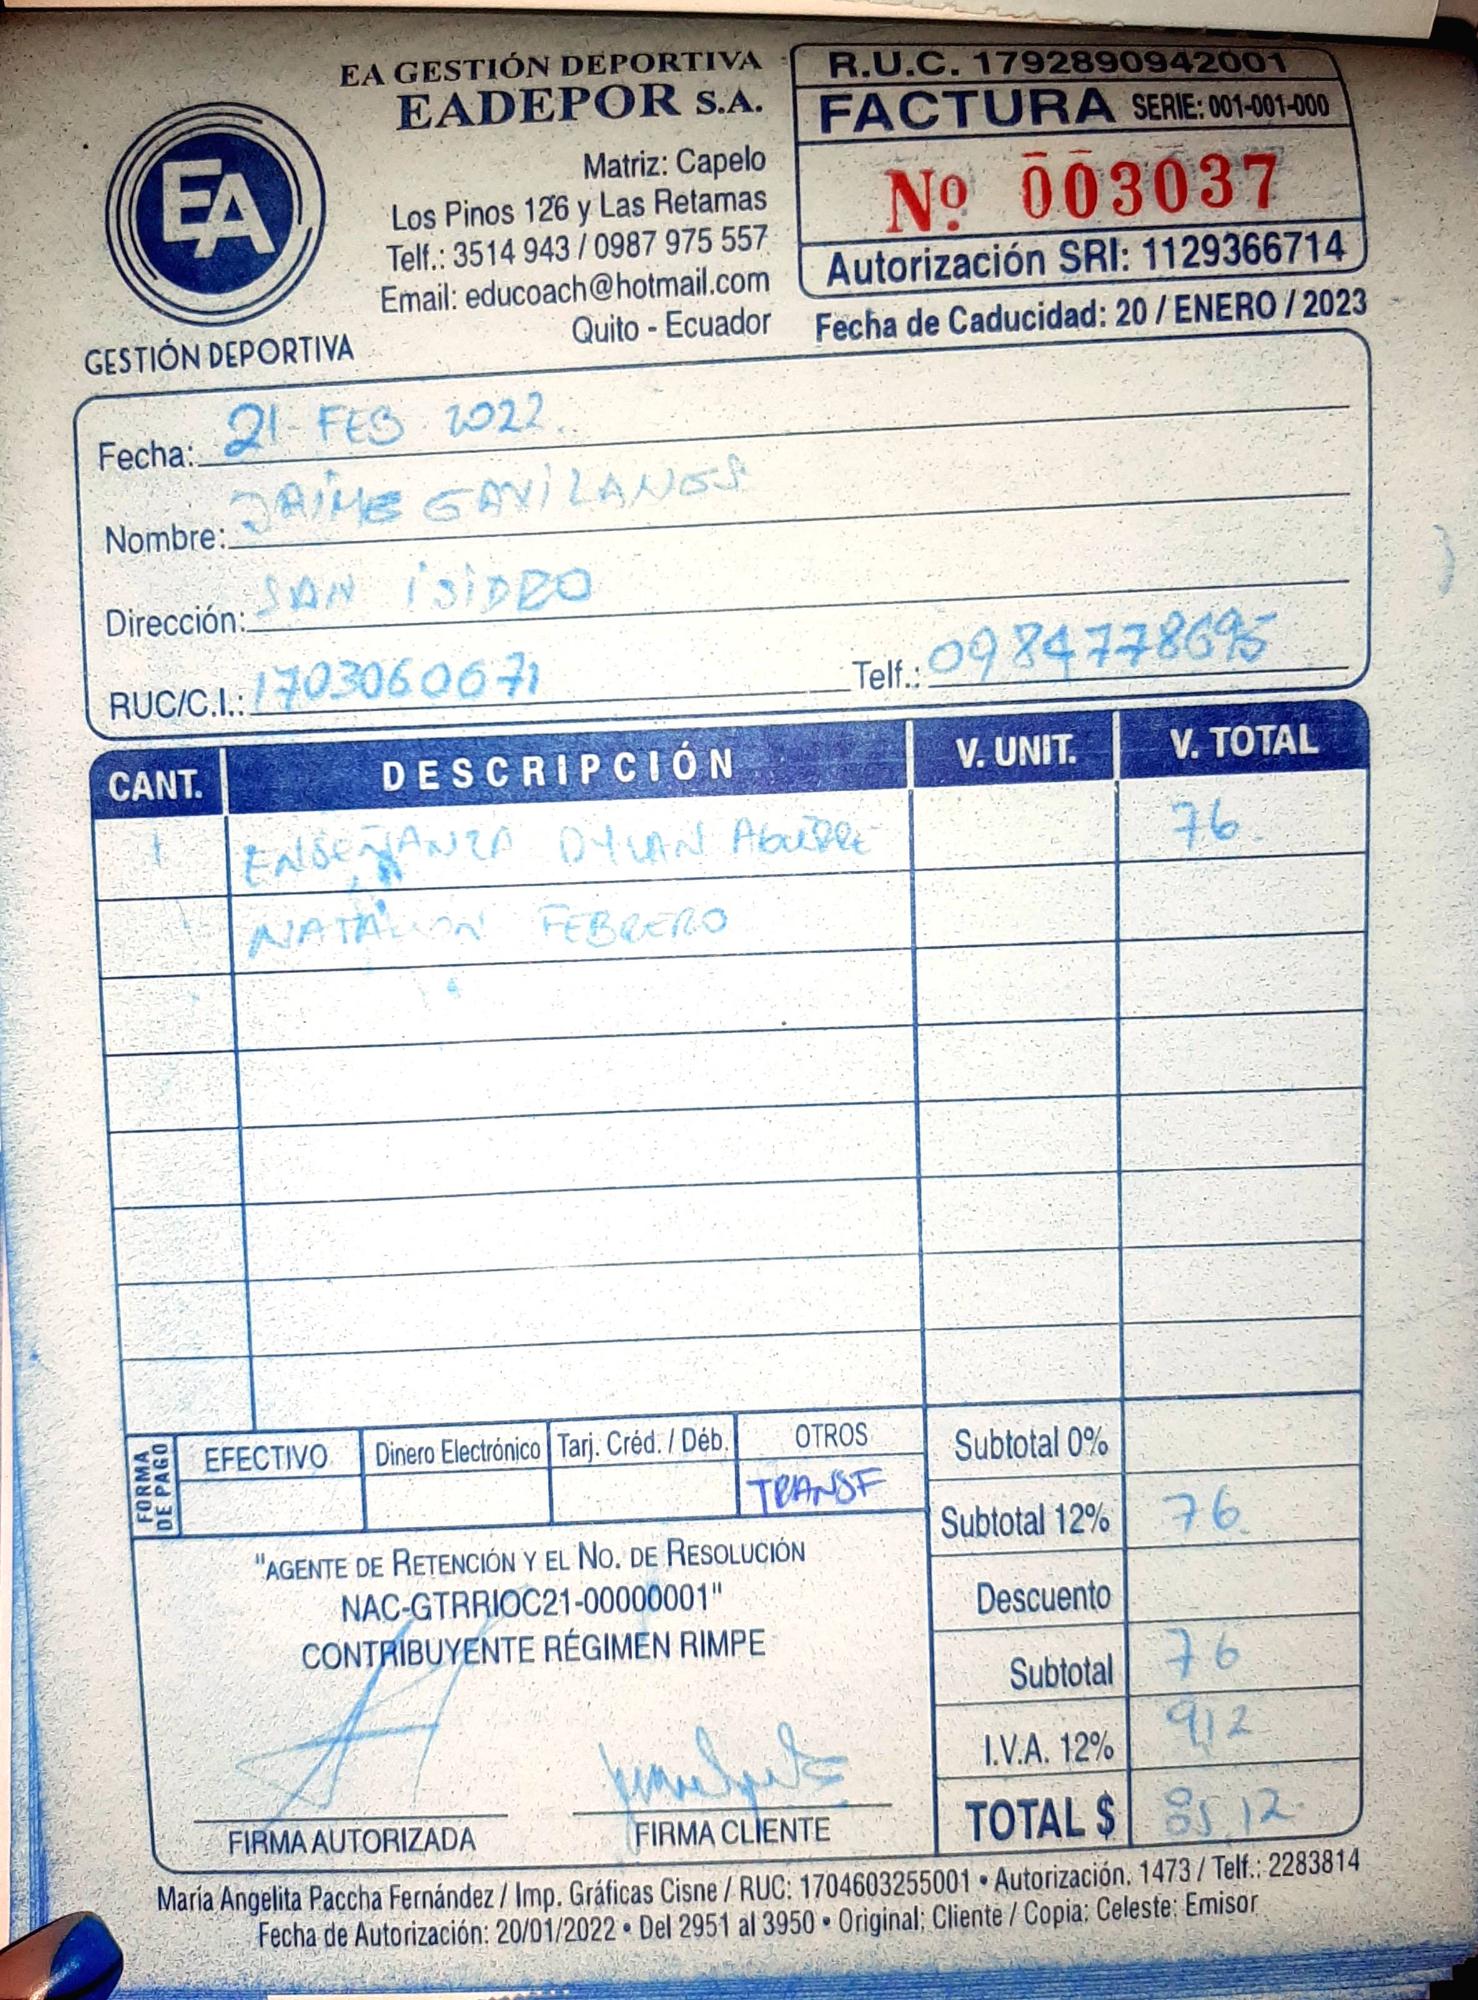 EA GESTIÓN DEPORTIVA
EADEPOR S.A.
Matriz: Capelo
Los Pinos 126 y Las Retamas
Telf.: 3514 943 / 0987 975 557
Email: educoach@hotmail.com
Quito - Ecuador
EA
GESTIÓN DEPORTIVA
R.U.C. 1792890942001
FACTURA SERIE: 001-001-000
Nº 003037
Autorización SRI: 1129366714
Fecha de Caducidad: 20 / ENERO / 2023
Fecha: 21-FEB-2022
Nombre: JAIME GAVILANES
Dirección: SAN ISIDRO
RUC/C.I.: 1703060071 Telf.: 0984778695
CANT. DESCRIPCIÓN V. UNIT. V. TOTAL
1 ENSEÑANZA DYLAN AGUIRRE 76.
NATACION FEBRERO
FORMA DE PAGO
EFECTIVO Dinero Electrónico Tarj. Créd. / Déb. OTROS
TRANSF
Subtotal 0%
Subtotal 12% 76.
Descuento
Subtotal 76
I.V.A. 12% 9,12
TOTAL $ 85,12
"AGENTE DE RETENCIÓN Y EL NO. DE RESOLUCIÓN
NAC-GTRRIOC21-00000001"
CONTRIBUYENTE RÉGIMEN RIMPE
FIRMA AUTORIZADA FIRMA CLIENTE
María Angelita Paccha Fernández / Imp. Gráficas Cisne / RUC: 1704603255001 • Autorización. 1473 / Telf.: 2283814
Fecha de Autorización: 20/01/2022 • Del 2951 al 3950 • Original; Cliente / Copia: Celeste: Emisor